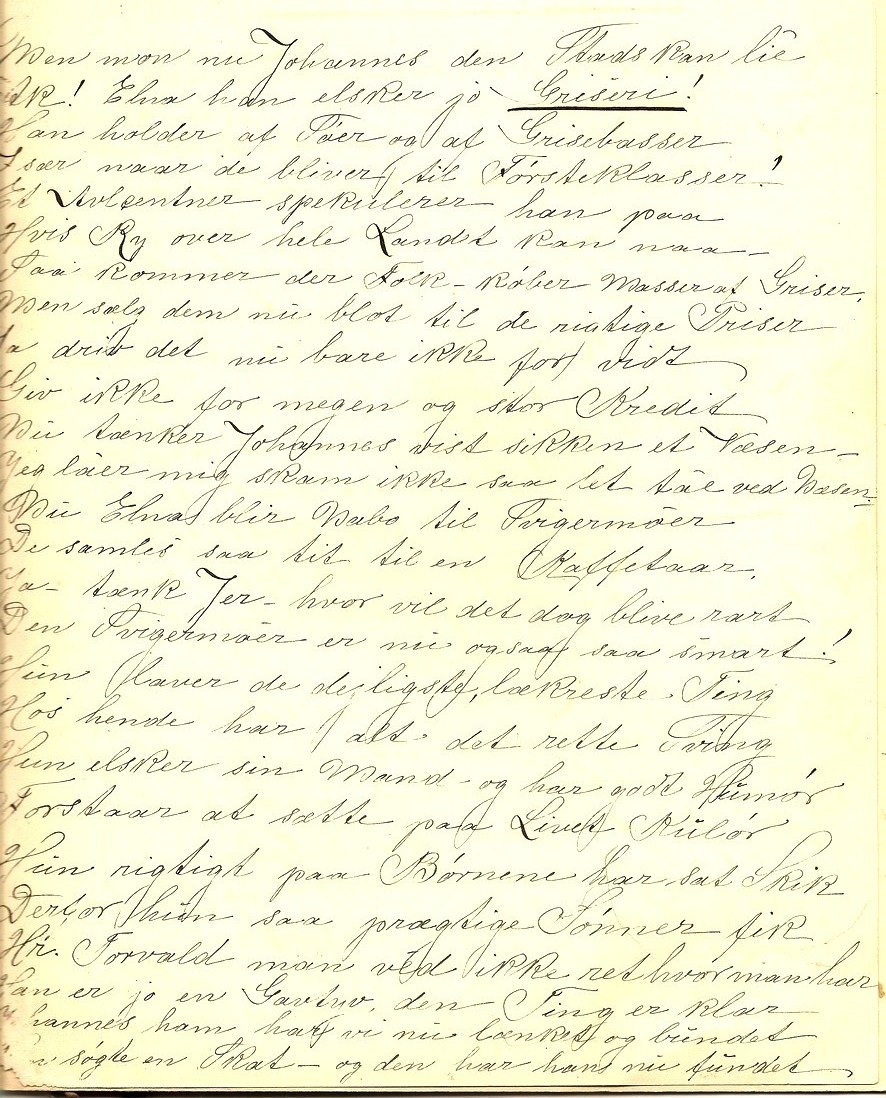 Men mon nu Johannes den Stads kan lie
Ak! Elna han elsker jo Griseri!
Han holder af Søer og af Grisebasser
Især naar de bliver til Førsteklasser!
Et Avlcentner spekulerer han paa
Hvis Ry over hele Landet kan naa —
Saa kommer der Folk – køber Masser af Griser,
Men sælg dem nu blot til de rigtige Priser
Ja driv det nu bare ikke for vidt
Giv ikke for megen og stor Kredit
Nu tænker Johannes vist sikken et Væsen –
Jeg låer mig skam ikke saa let tåe ved Næsen;
Nu Elna blir Nabo til Svigermoer
De samles saa tit til en Kaffetaar.
Ja – tænk Jer – hvor vil det dog blive rart
Den Svigermoer er nu ogsaa saa smart!
Hun laver de dejligste, lækreste Ting
Hos hende har alt det rette Sving
Hun elsker sin Mand – og har godt Humør
Forstaar at sætte paa Livet Kulør
Hun rigtigt paa Børnene har sat Skik
Derfor hun saa prægtige Sønner fik
Hr. Torvald man ved ikke ret hvor man har
Han er jo en Gavtyv, den Ting er klar
Johannes ham har vi nu lænket og bundet
søgte en Skat – og den har han nu fundet